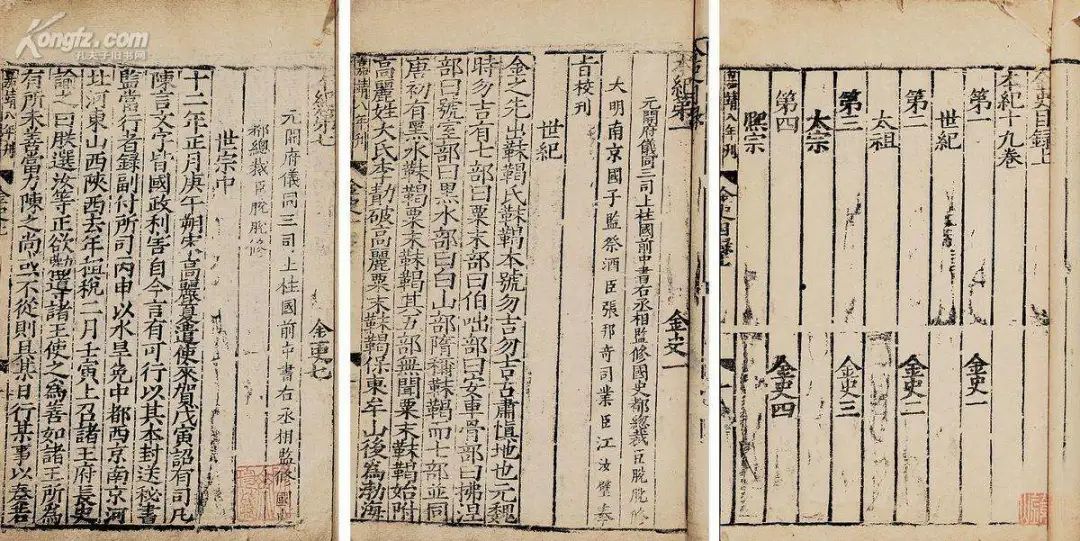 Kongfz.com
孔夫子旧书网
金史目録上
本紀十九卷
第一 金史一
世紀
第二 金史二
太祖
第三 金史三
太宗
第四 金史四
熙宗
嘉靖八年刊
本紀第一 金史一
元開府儀同三司上柱國前中書右丞相監修國史都總裁臣脫脫修
大明南京國子監祭酒臣張邦奇司業臣江汝璧奉
旨校刊
世紀
金之先出靺鞨氏靺鞨本號勿吉勿吉古肅慎地也元魏
時勿吉有七部曰粟末部曰伯咄部曰安車骨部曰拂涅
部曰號室部曰黑水部曰白山部隋稱靺鞨而七部並同
唐初有黑水靺鞨粟末靺鞨其五部無聞粟末靺鞨始附
高麗姓大氏李勣破高麗粟末靺鞨保東牟山後為渤海
嘉靖八年刊
本紀第七 金史七
元開府儀同三司上柱國前中書右丞相監修國史
都總裁臣脫脫修
世宗中
十二年正月庚午朔宋高麗夏遣使來賀戊寅詔有司凡
陳言文字皆國政利害自今言有可行以其本封送秘書
監當行者錄副付所司丙申以水旱免中都西京南京河
北河東山西陝西去年租稅二月壬寅上召諸王府長史
諭之曰朕選汝等正欲勸導諸王使之為善如諸王所為
有所未善當力陳之尚或不從則具某日行某事以奏若
嘉靖八年刊